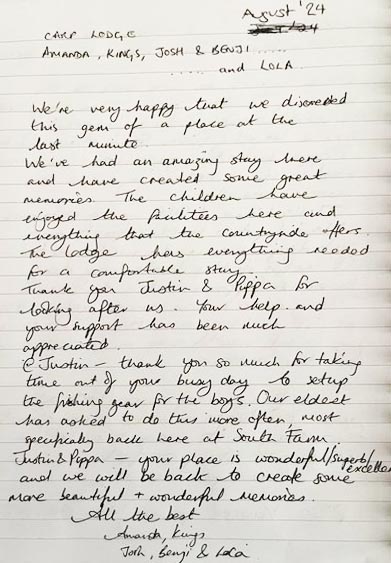 August '24
CARP LODGE
AMANDA, KINGS, JOSH & BENJI ......
...... and LOLA.
We're very happy that we discovered
this gem of a place at the
last minute.
We've had an amazing stay here
and have created some great
memories. The children have
enjoyed the facilities here and
everything that the countryside offers.
The lodge has everything needed
for a comfortable stay.
Thank you Justin & Pippa for
looking after us. Your help and
your support has been much
appreciated.
@ Justin - thank you so much for taking
time out of your busy day to setup
the fishing gear for the boys. Our eldest
has asked to do this more often, most
specifically back here at South Farm.
Justin & Pippa - your place is wonderful/superb/excellent
and we will be back to create some
more beautiful + wonderful memories.
All the best
Amanda, Kings
Josh, Benji & Lola